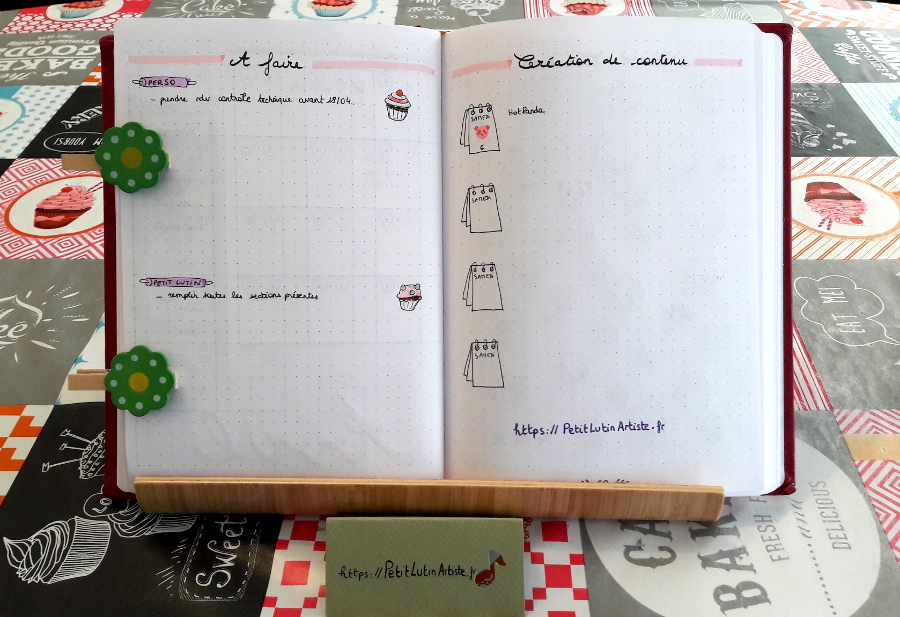 A faire
PERSO
- prendre rdv contrôle technique avant 18/04.
PETIT LUTIN
- remplir toutes les sections présentes
Création de contenu
SAMEDI
6
Hot Panda
SAMEDI
SAMEDI
SAMEDI
https://PetitLutinArtiste.fr
https://PetitLutinArtiste.fr
Cake
THE
BAKI
GOOD
EAT ME!
Sweet
CA
BAK
FRESH
DELICIOUS